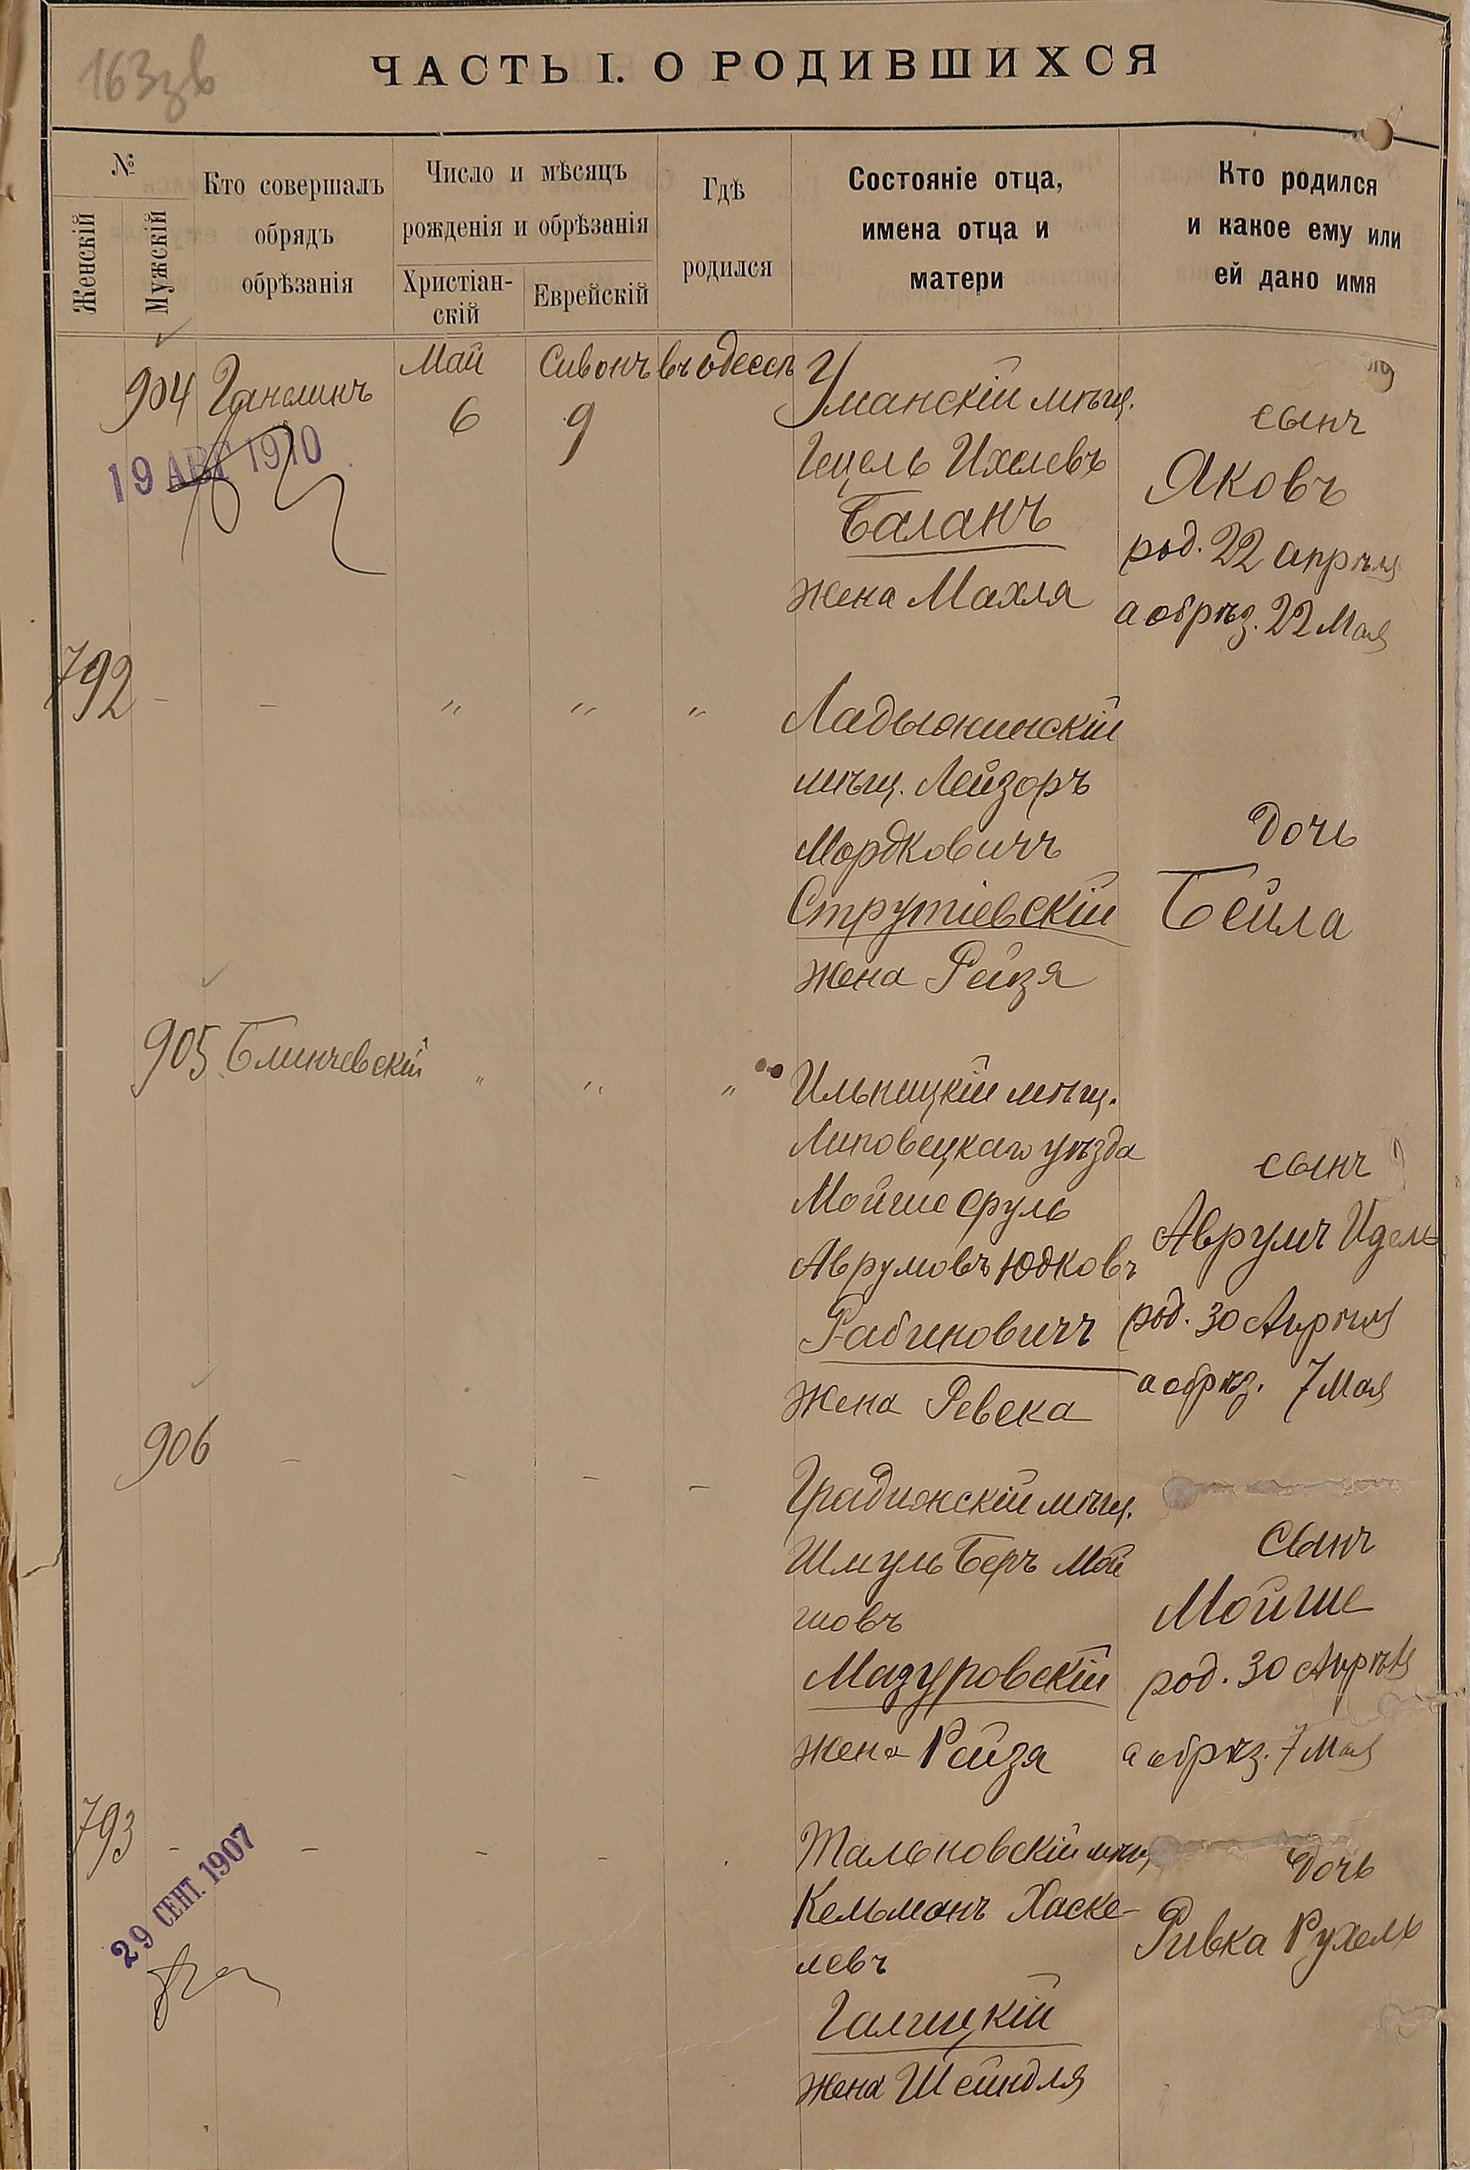 163 зв
ЧАСТЬ I. О РОДИВШИХСЯ
№
Женскій
Мужскій
Кто совершалъ
обрядъ
обрѣзанія
Число и мѣсяцъ
рожденія и обрѣзанія
Христіан-
скій
Еврейскій
Гдѣ
родился
Состояніе отца,
имена отца и
матери
Кто родился
и какое ему или
ей дано имя
904
Май
6
Сивонъ
9
въ Одессѣ
Уманскій мѣщ.
Гецель Ихелевъ
Баланъ
жена Махля
сынъ
Яковъ
род. 22 апрѣля
а обрѣз. 22 Мая
19 АВГ 1910
792 - - " " "
Ладыжинскій
мѣщ. Лейзоръ
Мордковичъ
Струтіевскій
жена Рейзя
дочь
Бейла
905 Блинчевскій " " "
Ильницкій мѣщ.
Липовецкаго уѣзда
Мойше Сруль
Аврумовъ Юдковъ
Рабиновичъ
жена Ревека
сынъ
Аврумъ Идель
род. 30 Апрѣля
а обрѣз. 7 Мая
906 - - - -
Градижскій мѣщ.
Шмуль Беръ Мой
шовъ
Мазуровскій
жена Рейзя
сынъ
Мойше
род. 30 Апрѣля
а обрѣз. 7 Мая
793 - - - -
29 СЕНТ. 1907
Тальновскій мѣщ
Кельманъ Хаске-
левъ
Галицкій
жена Шейндля
дочь
Ривка Рухель